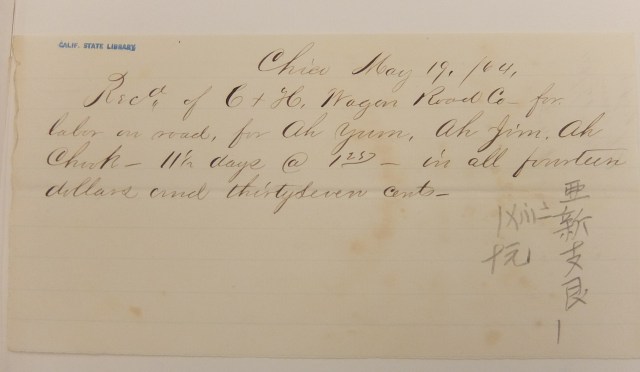 CALIF. STATE LIBRARY
Chico May 19, /64.
Recd. of C & H. Wagon Road Co – for
labor on road, for Ah Yum, Ah Jim, Ah
Chook – 11½ days @ 1 25/ – in all fourteen
dollars and thirtyseven cents –
亜新支艮
〡〤〣〧
十元